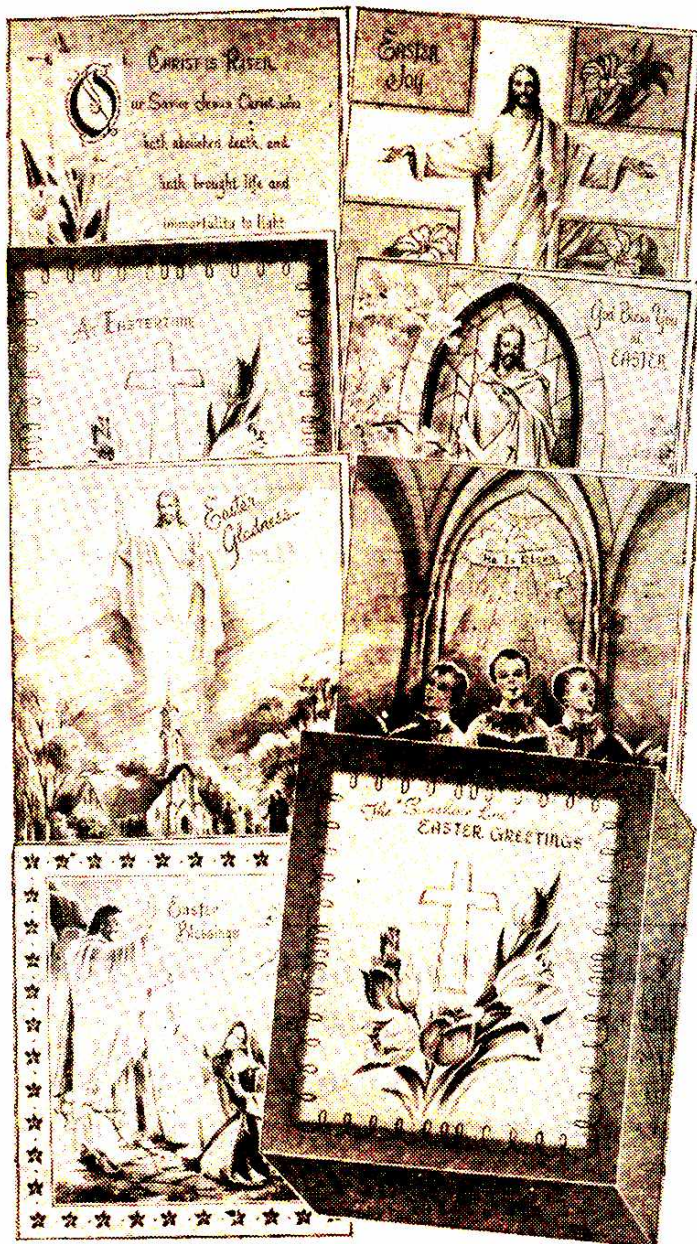 CHRIST IS RISEN
Our Savior Jesus Christ, who
hath abolished death, and
hath brought life and
immortality to light
EASTER
Joy
At EASTERTIME
God Bless You
at
EASTER
Easter
Gladness
He Is Risen
The "Sunshine Line"
EASTER GREETINGS
Easter
Blessings